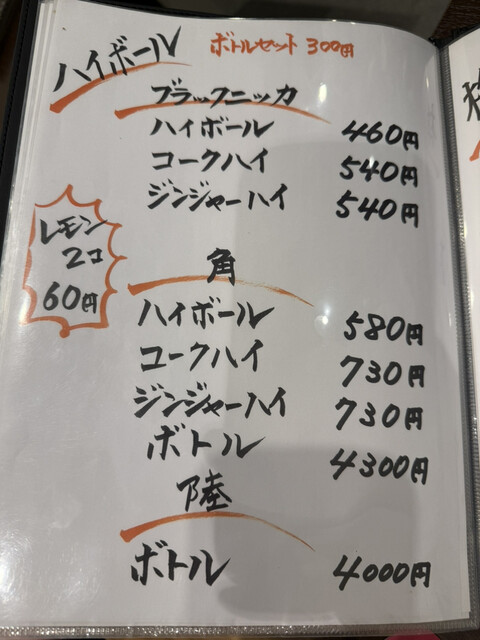 ハイボール ボトルセット 300円
ブラックニッカ
ハイボール 460円
コークハイ 540円
ジンジャーハイ 540円
レモン
2コ
60円
角
ハイボール 580円
コークハイ 730円
ジンジャーハイ 730円
ボトル 4300円
陸
ボトル 4000円